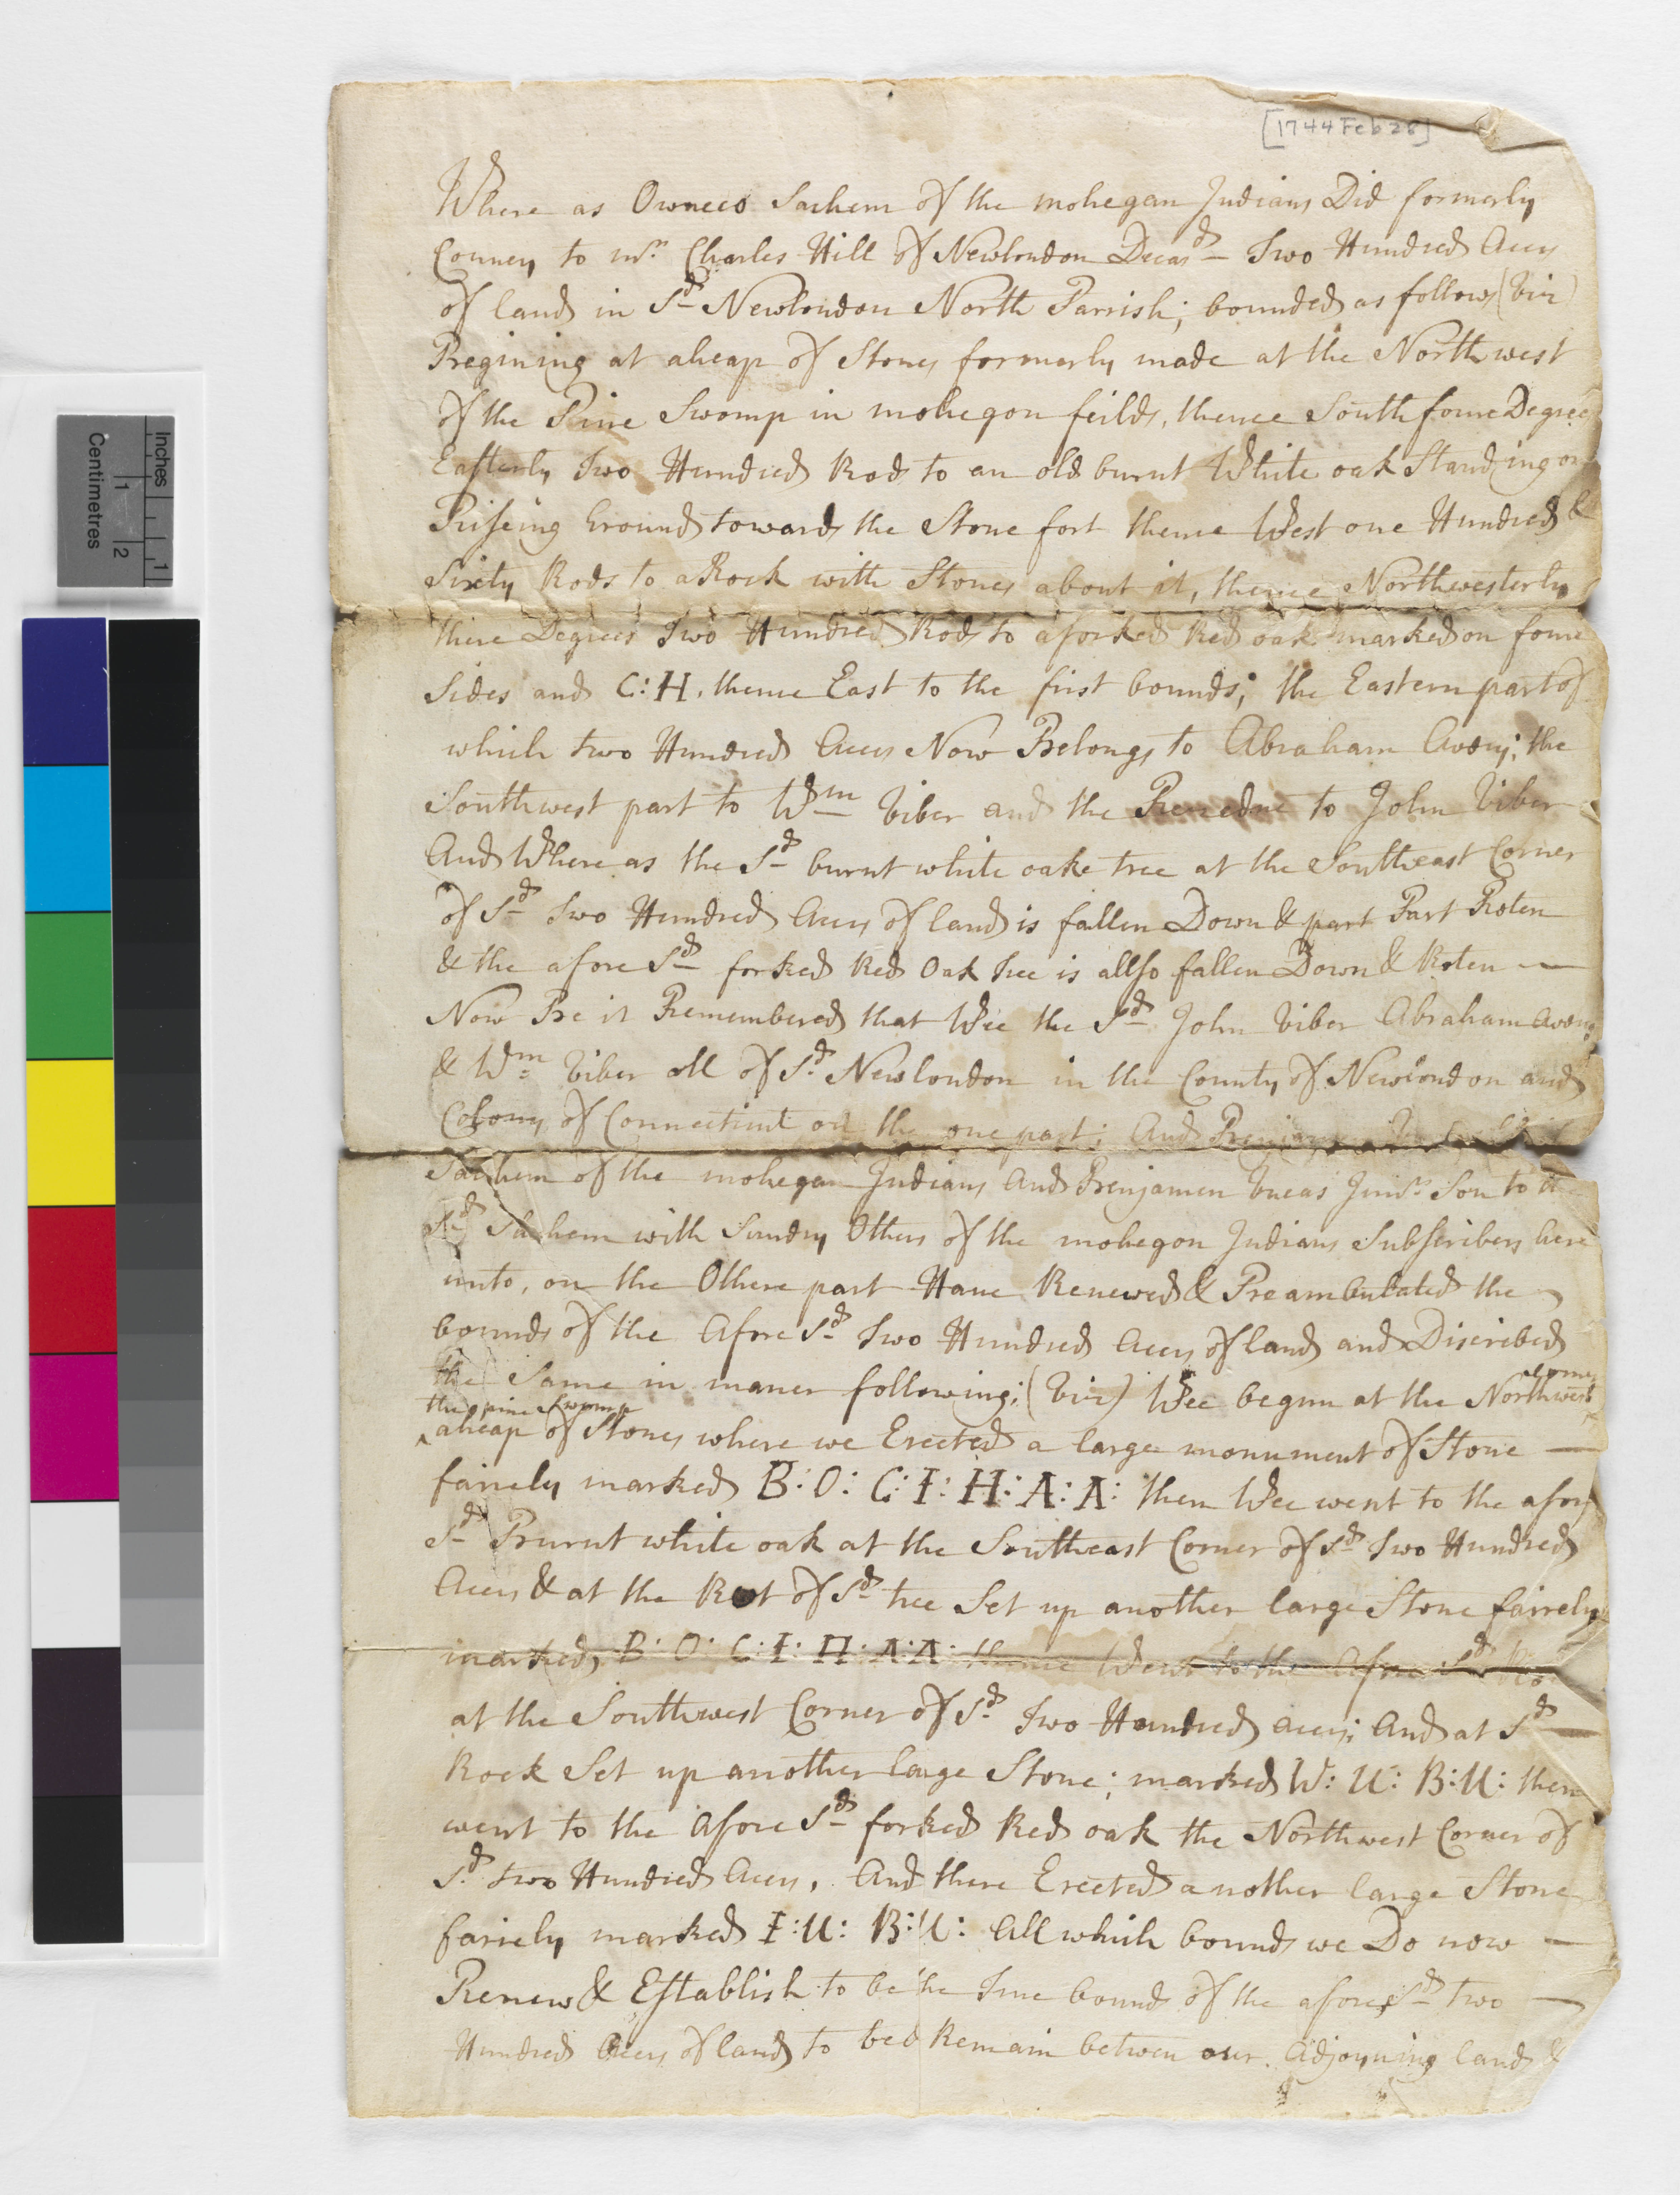 [1744 Feb 28]
Where as Owneco Sachem of the mohegan Indians Did formerly
Convey to mr. Charles Hill of Newlondon Decasd Two Hundred Acers
of land in Sd Newlondon North Parrish; bounded as follows (viz)
Begining at aheap of Stones formerly made at the North west
of the Pine Swomp in mohegon feilds, thence South foure Degrees
Easterly Two Hundred Rods to an old burnt White oak Standing on
Riseing Ground towards the Stone fort thence West one Hundred &
Sixty Rods to a Rock with Stones about it, thence Northwesterly
three Degrees Two Hundred Rods to a forked Red oak marked on foure
Sides and C:H, thence East to the first bounds; the Eastern part of
which two Hundred Acers Now Belongs to Abraham Avery; the
Southwest part to Wm Uiber and the Remedue to John Uiber
And Where as the Sd burnt white oake tree at the Southeast Corner
of Sd Two Hundred Acers of land is fallen Down & part Part Roten
& the afore Sd forked Red Oak tree is allso fallen Down & Roten —
Now Be it Remembered that Wee the Sd John Uiber Abraham Avery
& Wm Uiber all of Sd Newlondon in the County of Newlondon and
Colony of Connecticut on the one part; And
Sachem of the mohegan Indians And Benjamen Uncas Junr. Son to the
Sd Sachem with Sundry Others of the mohegon Indians Subscribers here
unto, on the Othere part Have Renewed & Preambulated the
bounds of the Afore Sd Two Hundred Acers of land and Discribed
the Same in maner following; (viz) Wee begun at the Northwest
corner
the pine Swomp
aheap of Stones where we Erected a large monument of Stone —
fairely marked B:O: C:I:H:A:A: then Wee went to the afore
Sd Burnt white oak at the Southeast Corner of Sd Two Hundred
Acers & at the Root of Sd tree Set up another large Stone fairely
marked, B:O: C:I:H:A:A: thence Went to the Afore Sd
at the Southwest Corner of Sd Two Hundred acers; And at Sd —
Rock Set up another large Stone; marked W:U: B:U: then
went to the Afore Sd forked Red oak the Northwest Corner of
Sd two Hundred Acers, And there Erected another large Stone
fairely marked I:U: B:U: All which bounds we Do now —
Renew & Establish to be the True bounds of the afores Sd two —
Hundred Acers of land to be & Remain between our Adjoyning lands &
Inches
1
1
2
Centimetres